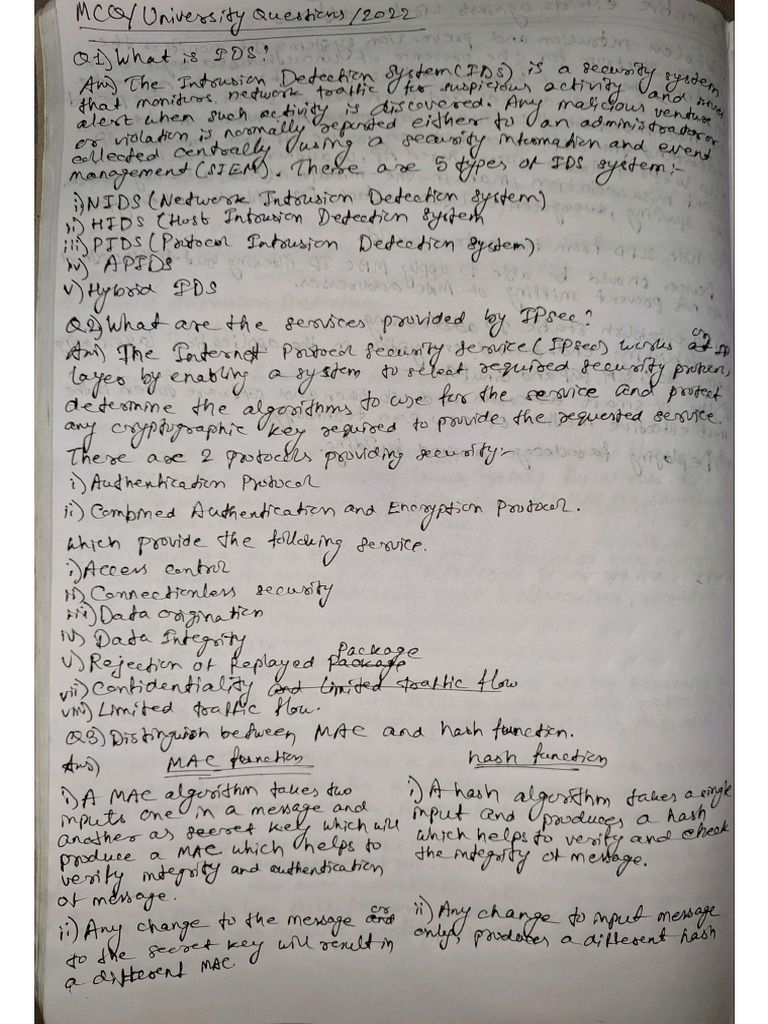 MCQ/University Questions/2022
Q1) What is IDS?
Ans) The Intrusion Detection System (IDS) is a security system
that monitors network traffic for suspicious activity and
alert when such activity is discovered. Any malicious venture
or violation is normally reported either to an administrator or
collected centrally using a security information and event
management (SIEM). There are 5 types of IDS system:-
i) NIDS (Network Intrusion Detection System)
ii) HIDS (Host Intrusion Detection System
iii) PIDS (Protocol Intrusion Detection System)
iv) APIDS
v) Hybrid IDS
Q2) What are the services provided by IPsec?
Ans) The Internet Protocol Security Service (IPsec) works on IP
layer by enabling a system to select required security protocols,
determine the algorithms to use for the service and protect
any cryptographic key required to provide the requested service.
There are 2 protocols providing security:-
i) Authentication Protocol
ii) Combined Authentication and Encryption Protocol.
which provide the following service.
i) Access control
ii) Connectionless security
iii) Data origination
iv) Data Integrity
v) Rejection of Replayed Package
vii) Confidentiality and limited traffic flow
viii) Limited traffic flow.
Q3) Distinguish between MAC and hash function.
Ans) MAC function
i) A MAC algorithm takes two
inputs one in a message and
another as secret key which will
produce a MAC which helps to
verify integrity and authentication
of message.
ii) Any change to the message or
to the secret key will result in
a different MAC.
hash function
i) A hash algorithm takes a single
input and produces a hash
which helps to verify and check
the integrity of message.
ii) Any change to input message
only, produces a different hash